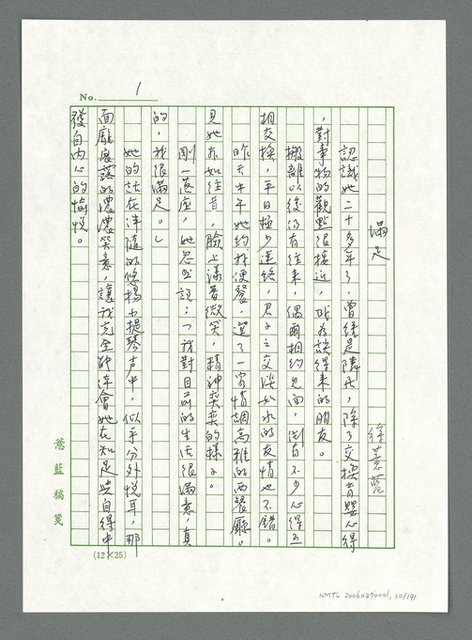 No. 1
滿足
徐薏藍
認識她二十多年了，曾經是隣居，除了交換育嬰心得
，對事物的觀點很接近，成為談得來的朋友。
搬離以後仍有往來，偶爾相約見面，倒有不少心得互
相交換，平日極少連絡，君子之交淡如水的友情也不錯。
昨天中午她約我便餐，選了一家情調高雅的西餐廳。
見她亦如往昔，臉上漾著微笑，精神奕奕的樣子。
剛一落座，她忽然說：「我對目前的生活很滿意，真
的，我很滿足。」
她的話在伴隨的悠揚小提琴声中，似乎分外悅耳，那
面龐展露的濃濃笑意，讓我完全能体會她在知足與自得中
發自內心的愉悅。
薏藍稿箋
(12×25)
NMTL 20060790001, 50/191